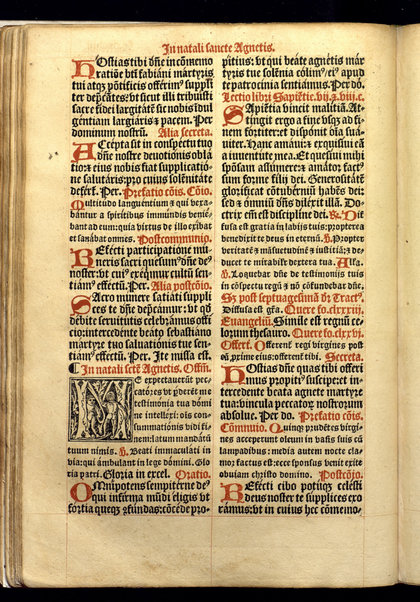 In natali sancte Agnetis.
HOstias tibi dn̄e in cōmemo
ratiōe bt̄i fabiani mártyris
tui atqȝ pōtificis offerim⁹ suppli
ter dep̄cátes: vt sicut illi tribuisti
sacre fidei largitatē sic nobis dones īdul
gentiam largiaris ⁊ pacem. Per
dominum nostrū. Alia secreta.
ACcepta sit in conspectu tuo
dn̄e nostre deuotiōnis oblá
tio: ⁊ eius nobis fiat supplicatió
ne salutaris: pro cuius solēnitate
defert̄. Per. Prefatio cōis. Cōio.
Multitudo languentium ⁊ qui vexa
bantur a spiritibus immundis venié
bant ad eum: quia virtus de illo exibat
et sanábat omnes. Postcommunio.
REfecti participatióne mu
neris sacri quesum⁹ dn̄e de⁹
noster: vt cui⁹ exéqmur cultū sen
tiam⁹ effectū. Per. Alia postcōio.
SAcro munere satiati suppli
ces te dn̄e dep̄camur: vt qd̄
débite seruitutis celebrámus offi
cio: intercedente beato sebastiano
martyre tuo saluatiónis tue sen
tiam⁹ effectū. Per. Ite missa est.
¶ In natali sctē Agnetis. Offm̄.
ME expectauerūt pec
catóres vt pérdēt me
testimonia tua dómi
ne intellexi: oīs con
summatiónis vidi fi
nem: latum mandátū
tuum nimis. ℣. Beati immaculati in
via: qui ámbulant in lege dómini. Glo
ria patri. Gloria in excel. Oratio.
OMnipotens sempiterne de⁹
qui infirma mūdi éligis vt
fortia queqȝ ⁊fundas: cōcéde pro-
pitius: vt qui beáte agnétis már
tyris tue solénia cólim⁹: ei⁹ apud
te patrocinia sentiámus. Per dō.
Lectio libri Sapiētie. vij. ⁊ viij. c.
SApiétia vincit malítiā. At
tíngit ergo a fine vsqȝ ad fi
nem fórtiter: et dispónit oīa sua
uiter. Hanc amáui: ⁊ exquisíui eā
a iuuentúte mea. Et quesíui mihi
sponsam assúmere: ⁊ amátor fact⁹
sum forme illi⁹ dei. Generositátē
gloríficat cōtubérniū habēs dei:
sed ⁊ omniū dn̄s diléxit illā. Do-
ctrix em̄ est discipline dei. ℟. Dif
fusa est gratia in labijs tuis: proptérea
benedíxit te deus in etérnū. ℣. Propter
veritátē ⁊ māsuetúdinē ⁊ iustítiā; ⁊ de-
ducet te mirabíliter déxtera tua. Alla.
℣. Loquebar dn̄e de testimónijs tuis
in cōspectu regū ⁊ nō cōfundébar dn̄e.
Sȝ post septuagesimā dr̄ Tract⁹.
Diffusa est grā. Quere fo. clxxiij.
Euangeliū. Simile est regnū ce
lorum thesauro. Quere fo. clxxxij.
Offert̄. Offerent̄ regi virgines post
eā: próxime eius: offerent̄ tibi. Secreta.
HOstias dn̄e quas tibi offeri
mus propiti⁹ súscipe: et in-
tercedénte beáta agnéte mártyre
tua: víncula peccatórū nostrórum
absólue. Per do. Prefatio cōis.
Cōmunio. Quinqȝ prudētes virgi
nes accepérunt óleum in vasis suis cū
lampádibus: média autem nocte cla
mor factus est: ecce sponsus venit exite
óbuiam christo dómino. Postcōio.
REfécti cibo potúqȝ celésti
deus noster te súpplices exo
rámus: vt in cuius hec cōmemo-